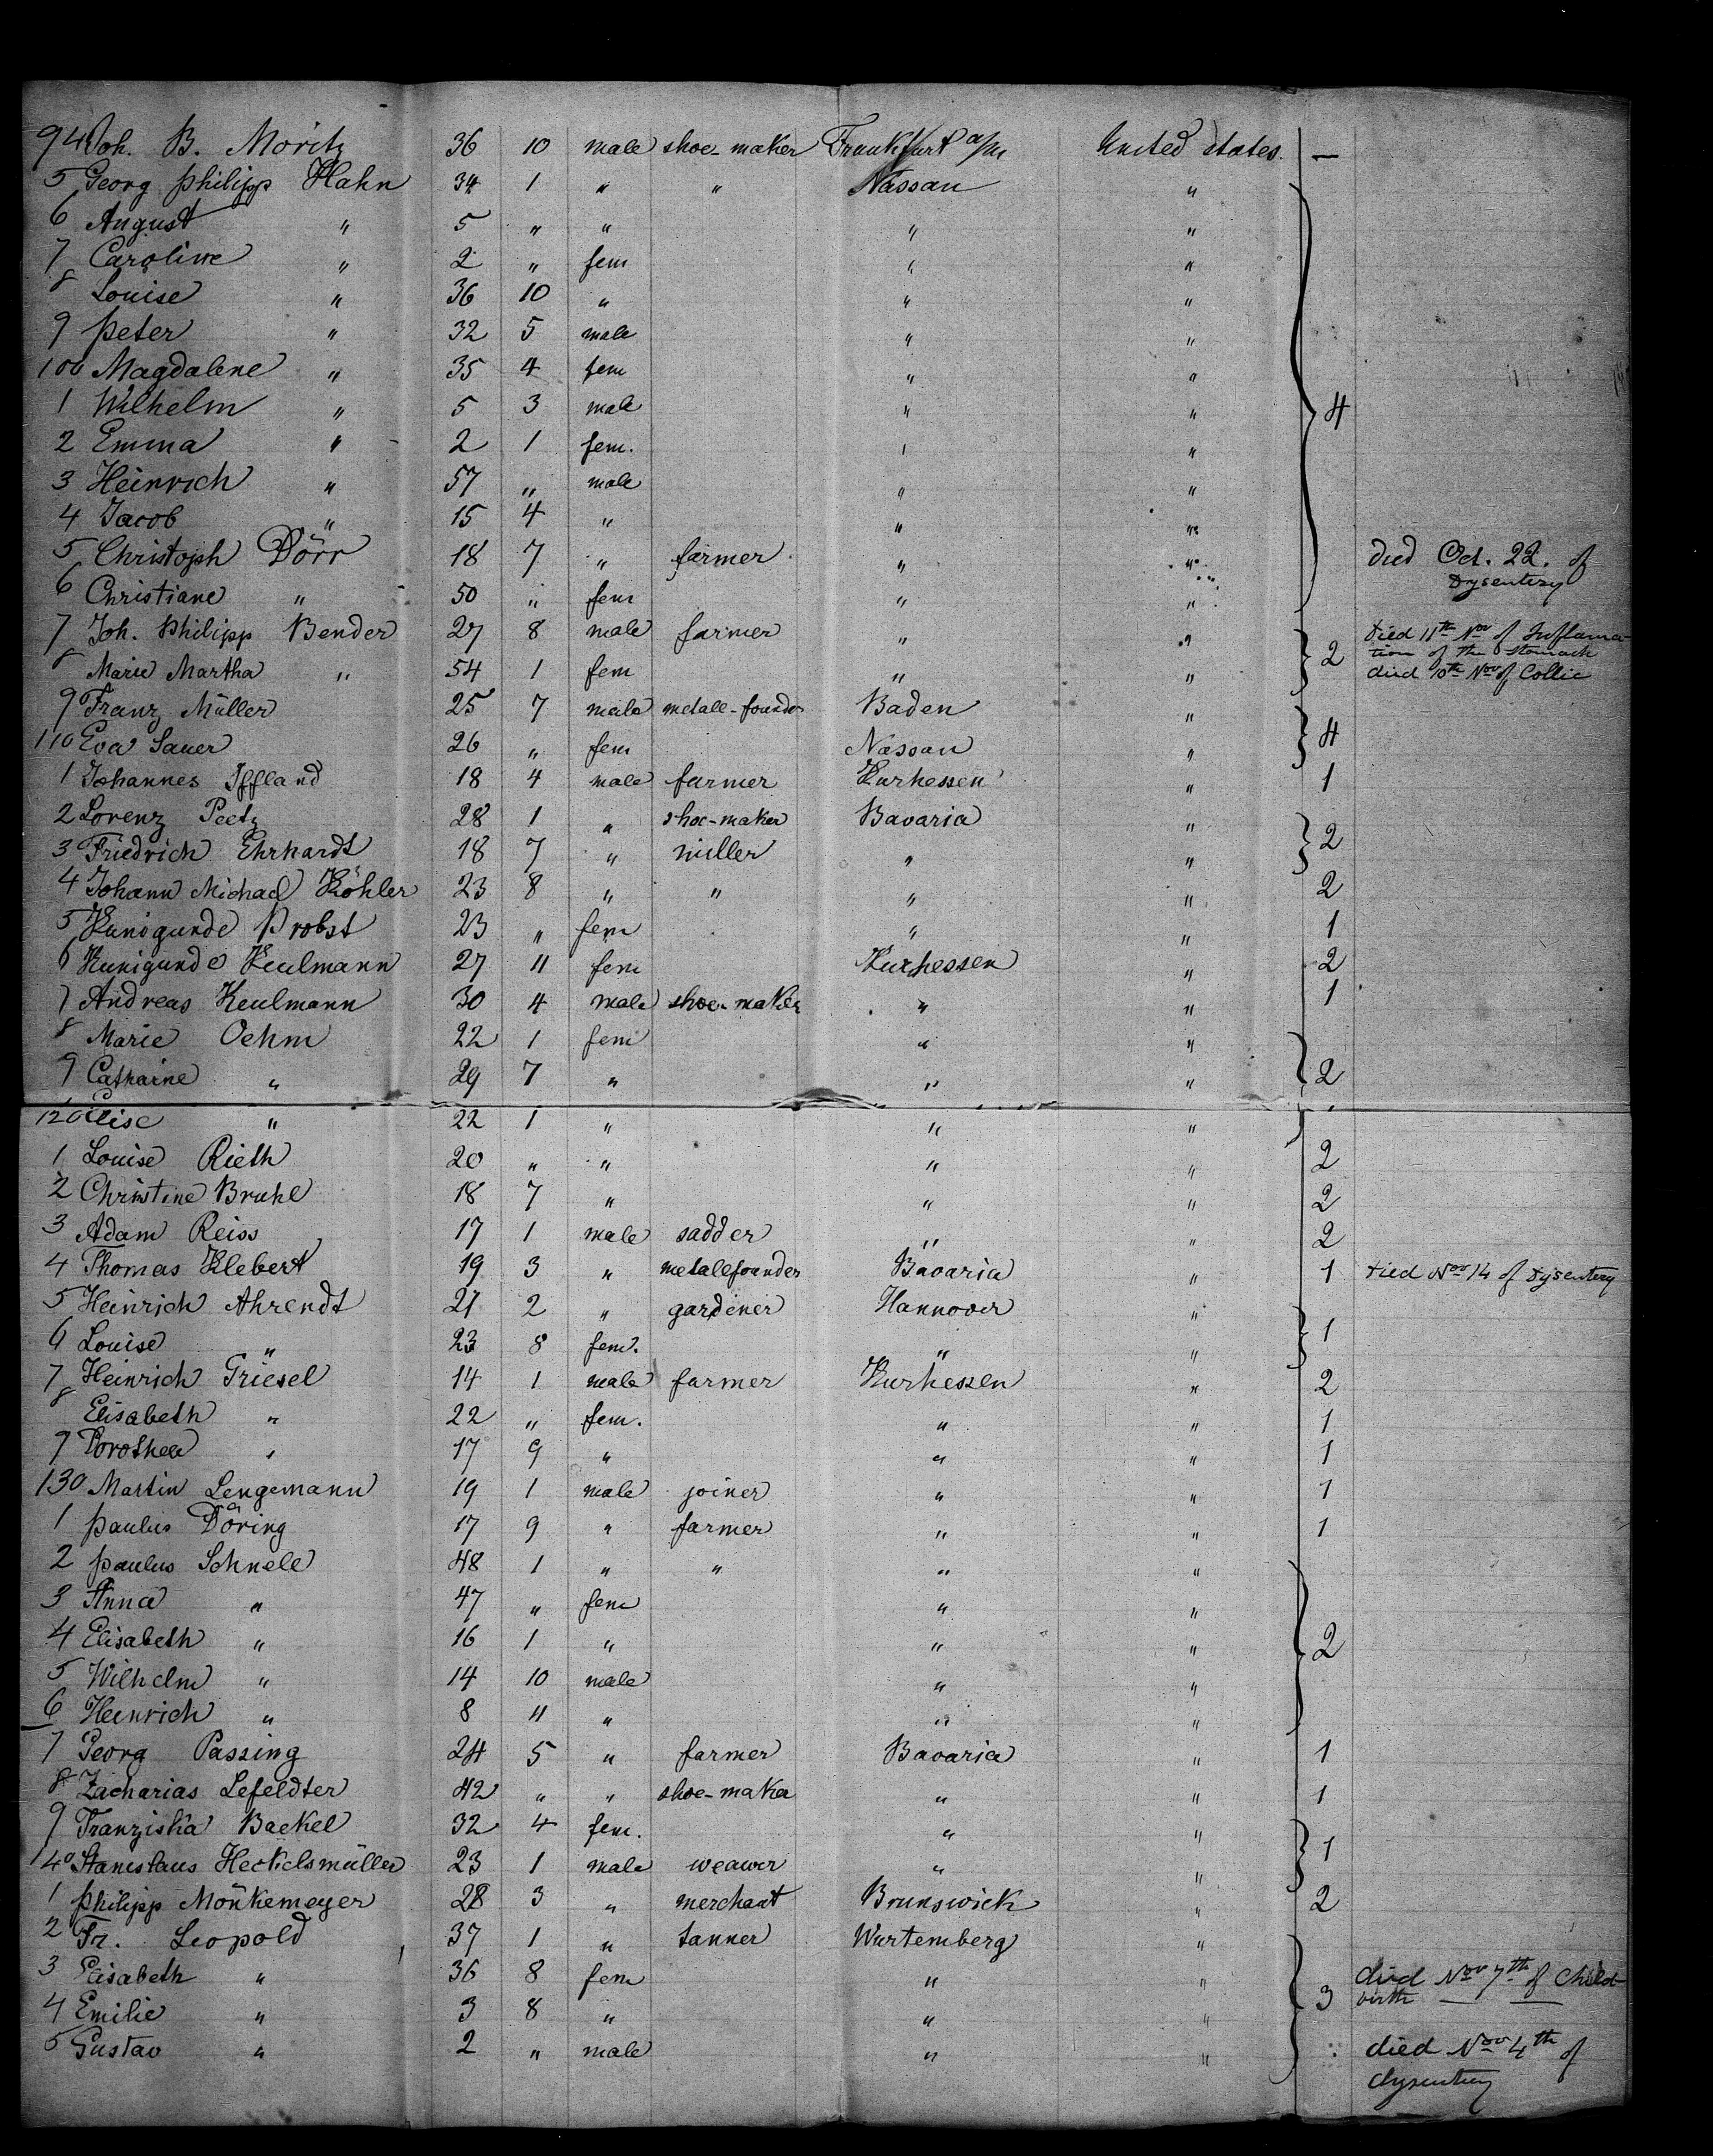 94 Joh. B. Moritz 36 10 male shoe-maker Frankfurt a/m United States. —
5 Georg Philipp Hahn 34 1 " " Nassau "
6 August " 5 " " " "
7 Caroline " 2 " fem " "
8 Louise " 36 10 " " "
9 Peter " 32 5 male " "
100 Magdalene " 35 4 fem " "
1 Wilhelm " 5 3 male " " 4
2 Emma " 2 1 fem. " "
3 Heinrich " 57 " male " "
4 Jacob " 15 4 " " "
5 Christoph Dörr 18 7 " farmer " " died Oct. 22. of Dysentery
6 Christiane " 50 " fem " "
7 Joh. Philipp Bender 27 8 male farmer " " 2 died 11th Nov of Inflamation of the stomach
8 Marie Martha " 54 1 fem " " died 10th Nov of Collic
9 Franz Müller 25 7 male metall-founder Baden "
110 Eva Sauer 26 " fem Nassau " 4
1 Johannes Iffland 18 4 male farmer Kurhessen " 1
2 Lorenz Peetz 28 1 " shoe-maker Bavaria "
3 Friedrich Ehrhardt 18 7 " miller " " 2
4 Johann Michael Köhler 23 8 " " " " 2
5 Kunigunde Probst 23 " fem " " 1
6 Kunigunde Keulmann 27 11 fem Kurhessen " 2
7 Andreas Keulmann 30 4 male shoe-maker " " 1
8 Marie Oehm 22 1 fem " "
9 Catharine " 29 7 " " " 2
120 Elise " 22 1 " " "
1 Louise Rieth 20 " " " " 2
2 Christine Bruhl 18 7 " " " 2
3 Adam Reiss 17 1 male sadder " " 2
4 Thomas Klebert 19 3 " metallfounder Bavaria " 1 died Nov 14 of Dysentery
5 Heinrich Ahrendt 27 2 " gardener Hannover "
6 Louise " 23 8 fem. " " 1
7 Heinrich Griesel 14 1 male farmer Kurhessen " 2
8 Elisabeth " 22 " fem. " " 1
9 Dorothea " 17 9 " " " 1
130 Martin Lengemann 19 1 male joiner " " 1
1 Paulus Döring 17 9 " farmer " " 1
2 Paulus Schnell 48 1 " " " "
3 Anna " 47 " fem " "
4 Elisabeth " 16 1 " " " 2
5 Wilhelm " 14 10 male " "
6 Heinrich " 8 11 " " "
7 Georg Passing 24 5 " farmer Bavaria " 1
8 Zacharias Lefeldter 42 " " shoe-maker " " 1
9 Franziska Backel 32 4 fem. " "
40 Stanislaus Heckelsmüller 23 1 male weawer " " 1
1 Philipp Mönkemeyer 28 3 " merchant Brunswick " 2
2 Fr. Leopold 37 1 " tanner Wurtemberg "
3 Elisabeth " 36 8 fem " " died Nov 7th of Childbirth
4 Emilie " 3 8 " " " 3
5 Gustav " 2 " male " " died Nov 4th of dysentery